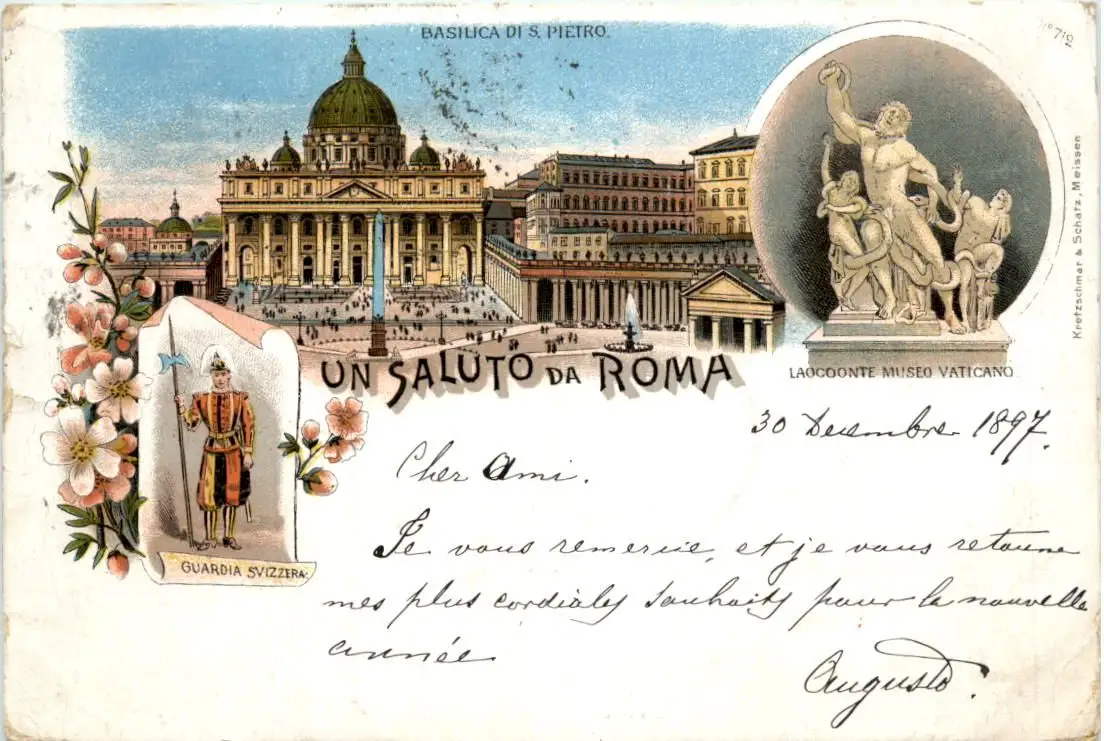 BASILICA DI S. PIETRO.
No 712
Kretzschmar & Schatz, Meissen
UN SALUTO DA ROMA
LAOCOONTE MUSEO VATICANO
GUARDIA SVIZZERA
30 Decembre 1897.
Cher Ami.
Je vous remercie, et je vous retourne
mes plus cordiales souhaits pour la nouvelle
année
Augusto.